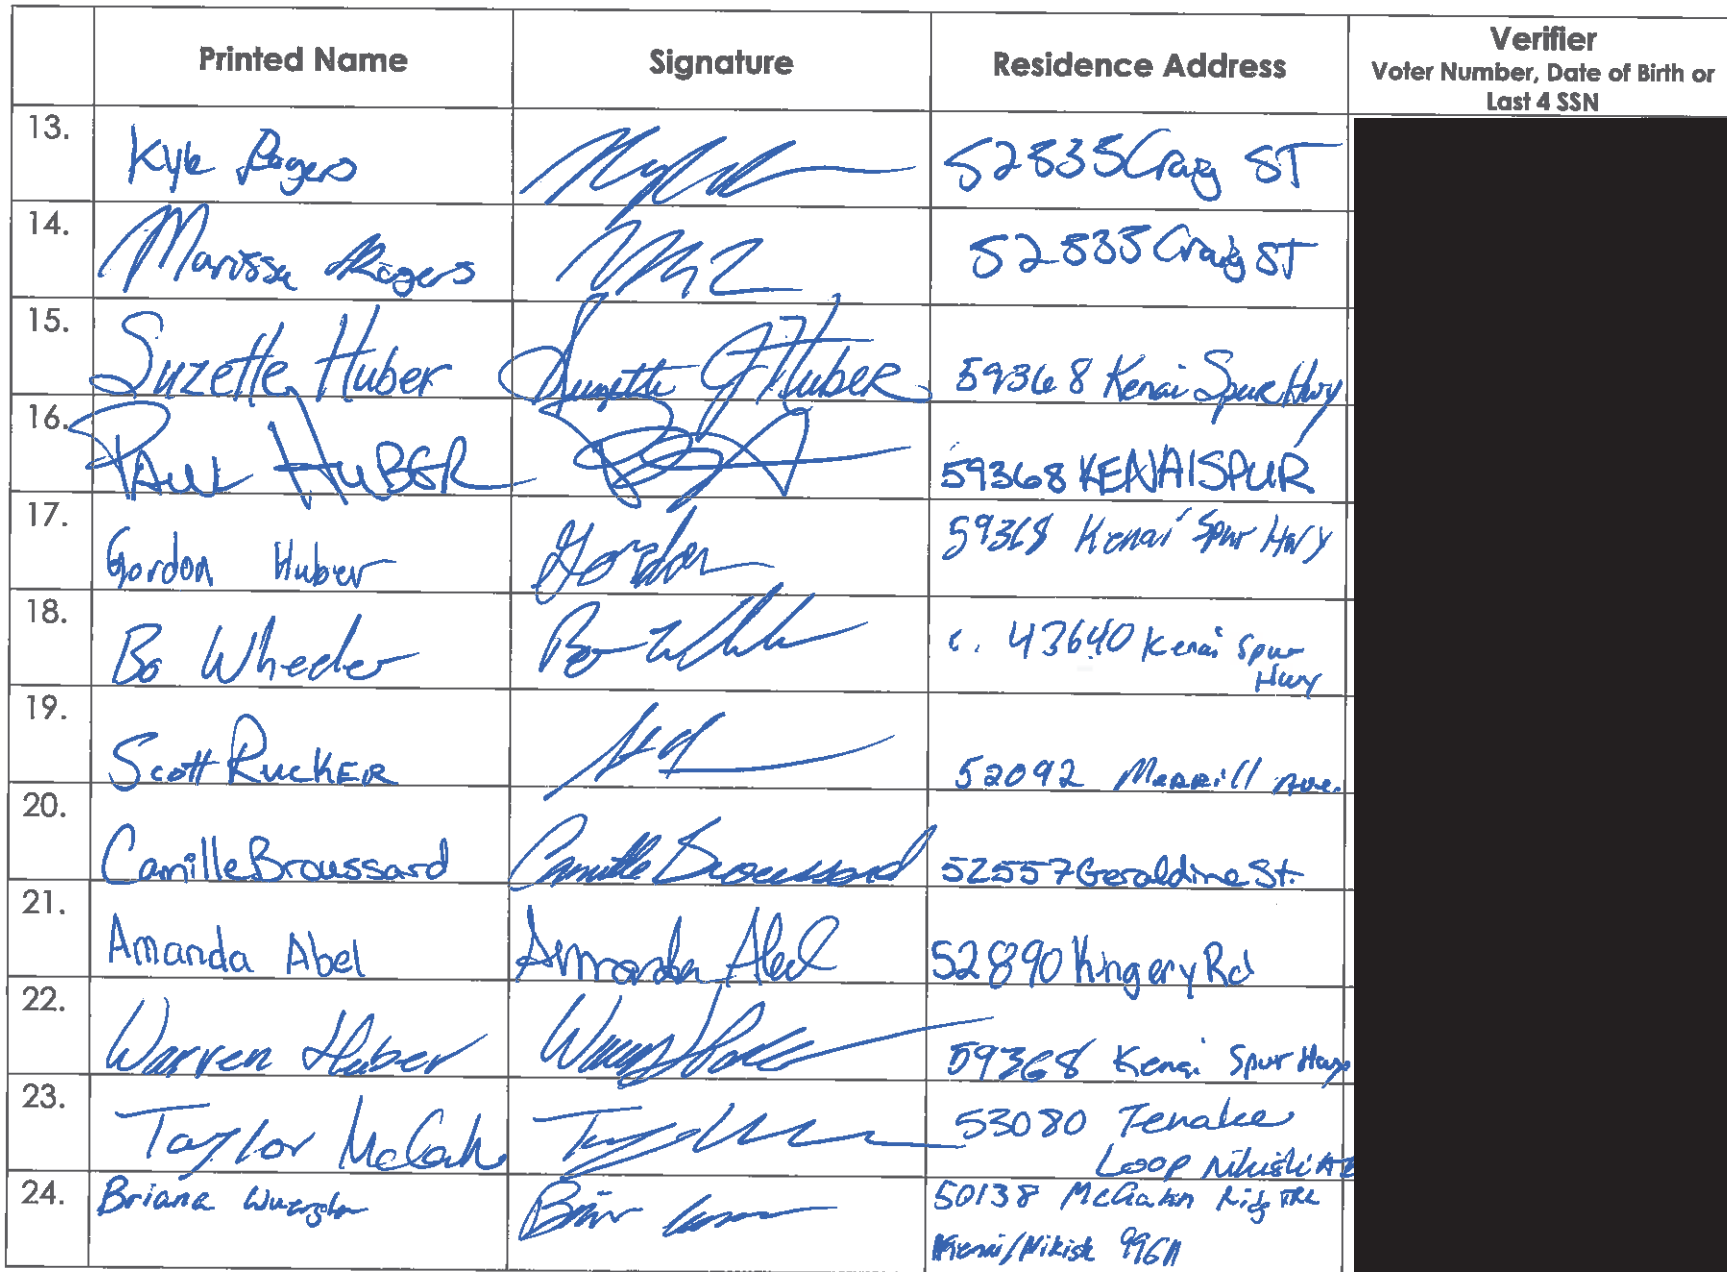 Printed Name Signature Residence Address Verifier
Voter Number, Date of Birth or
Last 4 SSN
13. Kyle Rogers 52835 Craig ST
14. Marissa Rogers 52835 Craig ST
15. Suzette Huber Suzette J Huber 59368 Kenai Spur Hwy
16. PAUL HUBER 59368 KENAI SPUR
17. Gordon Huber Gordon 59368 Kenai Spur Hwy
18. Bo Wheeler Bo 43640 Kenai Spur
Hwy
19. Scott RUCKER 52092 Merrill Ave.
20. Camille Broussard Camille Broussard 52557 Geraldine St.
21. Amanda Abel Amanda Abel 52890 Kingery Rd
22. Warren Huber 59368 Kenai Spur Hwy
23. Taylor 53080 Tenakee
Loop Nikiski AK
24. Briana 50138
Kenai/Nikiski